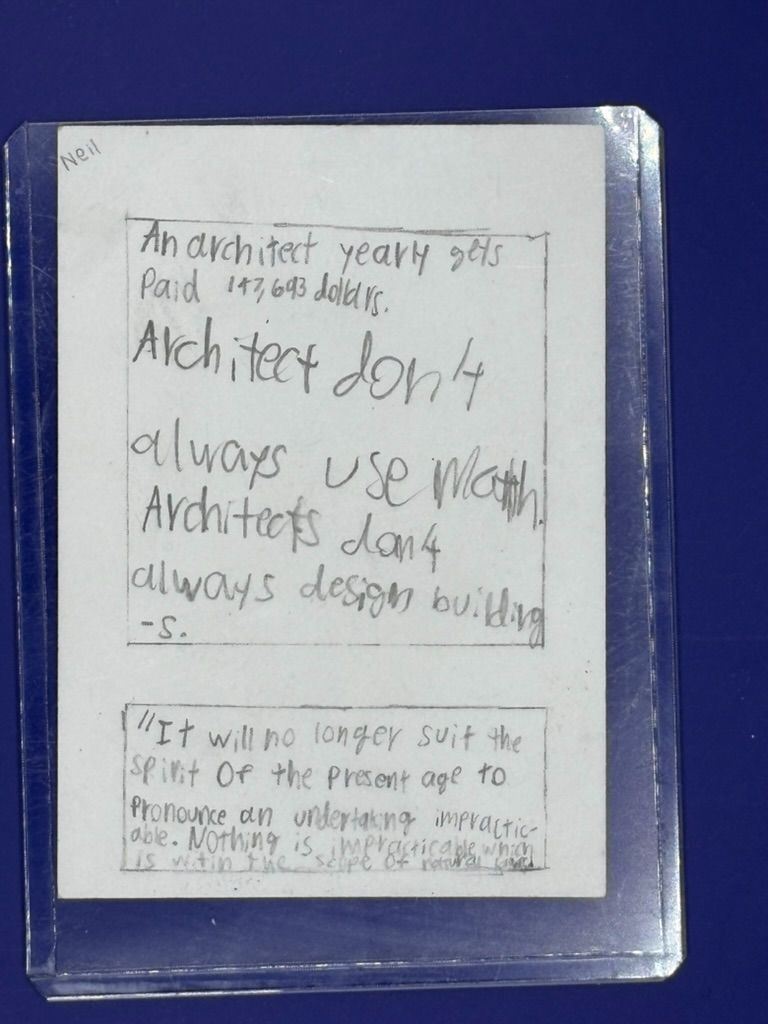 Neil
An architect yearly gets
Paid 147,693 dollars.
Architect don4
always use Math.
Architects don4
always design building
-s.
"It will no longer suit the
spirit Of the present age to
pronounce an undertaking impractic-
able. Nothing is impracticable which
is witin the scope of natural